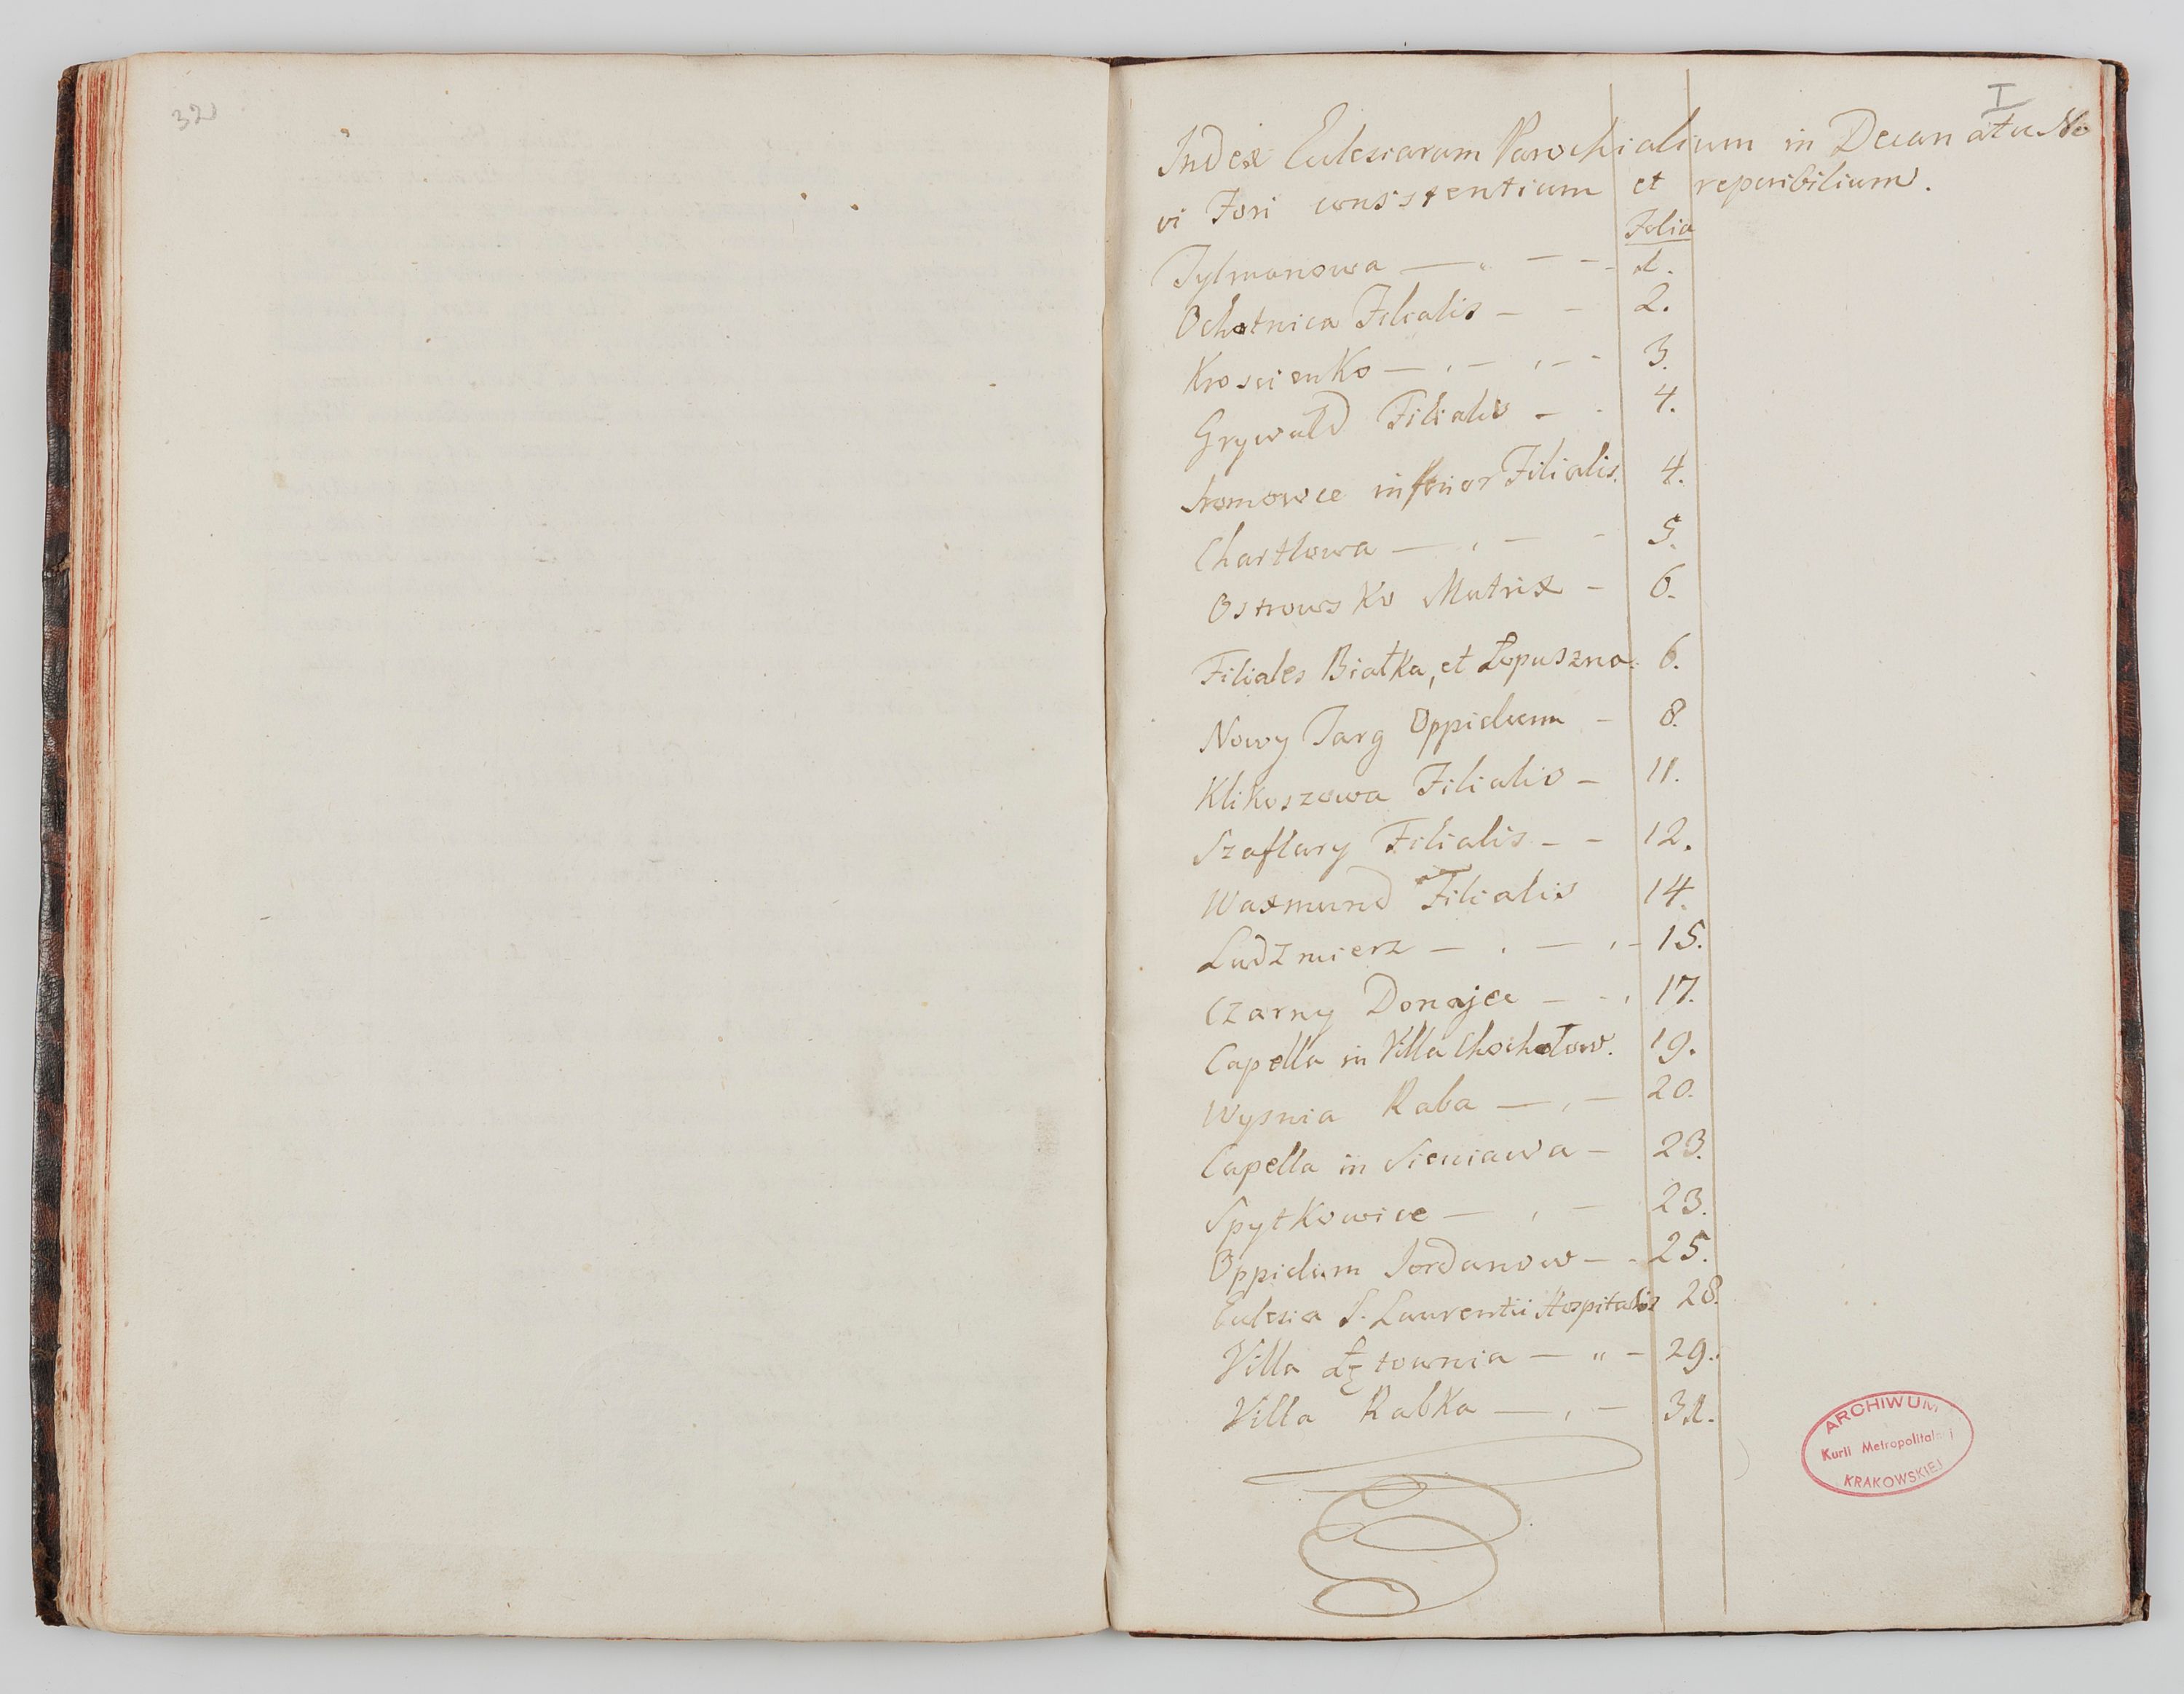 32
I
Index Ecclesiarum Parochialium in Decanatu No
vi Fori consistentium et reperibilium.
Folia
Tylmanowa — „ — - - 1.
Ochotnica Filialis — - 2.
Kroscienko — , — , — - 3.
Grywald Filialis — - 4.
Sromowce inferior Filialis. 4.
Chartlowa — , — - 5.
Ostrowsko Matrix - 6.
Filiales Białka, et Łopuszna. 6.
Nowy Targ Oppidum - 8.
Klikuszowa Filialis — 11.
Szaflary Filialis — - 12.
Waxmund Filialis 14.
Ludzmierz — . — , - 15.
Czarny Donajec — - , 17.
Capella in Villa Chochołow. 19.
Wysnia Raba — , — 20.
Capella in Sieniawa — 23.
Spytkowice — , — 23.
Oppidum Jordanow — - 25.
Ecclesia S. Laurentii Hospitalis 28.
Villa Łętownia — „ — 29.
Villa Rabka — , — 31.
ARCHIWUM
Kurii Metropolitalnej
KRAKOWSKIEJ